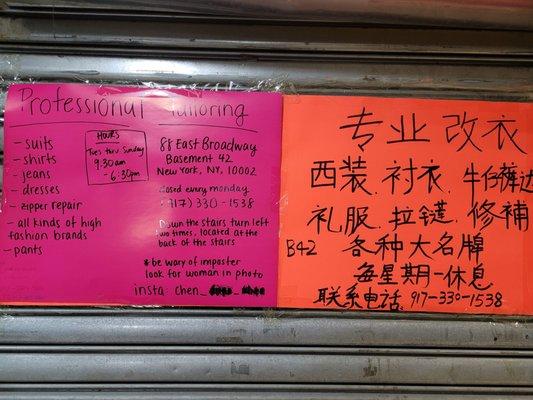 Professional Tailoring
- suits
- shirts
- jeans
- dresses
- zipper repair
- all kinds of high
fashion brands
- pants
HOURS
Tues thru Sunday
9:30am
- 6:30pm
88 East Broadway
Basement 42
New York, NY, 10002
closed every monday
(917) 330-1538
Down the stairs turn left
two times, located at the
back of the stairs
* be wary of imposter
look for woman in photo
insta: chen_
专业改衣
西装.衬衣.牛仔裤
礼服.拉链.修補
B42 各种大名牌
每星期一休息
联系电话.917-330-1538